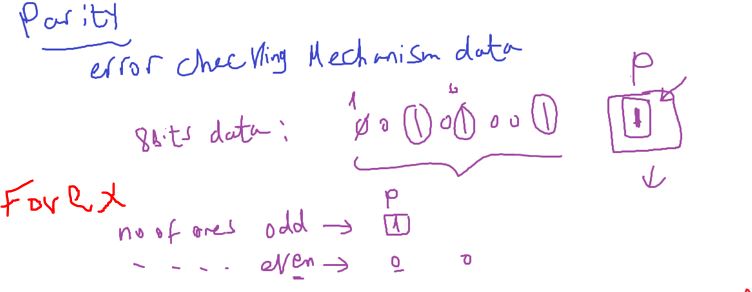 Parity
error checking Mechanism data
P
1 6
8bits data: 0 0 1 0 1 0 0 1 1
For Ex
P
no of ones odd → 1
- - - - . . even → 0 0